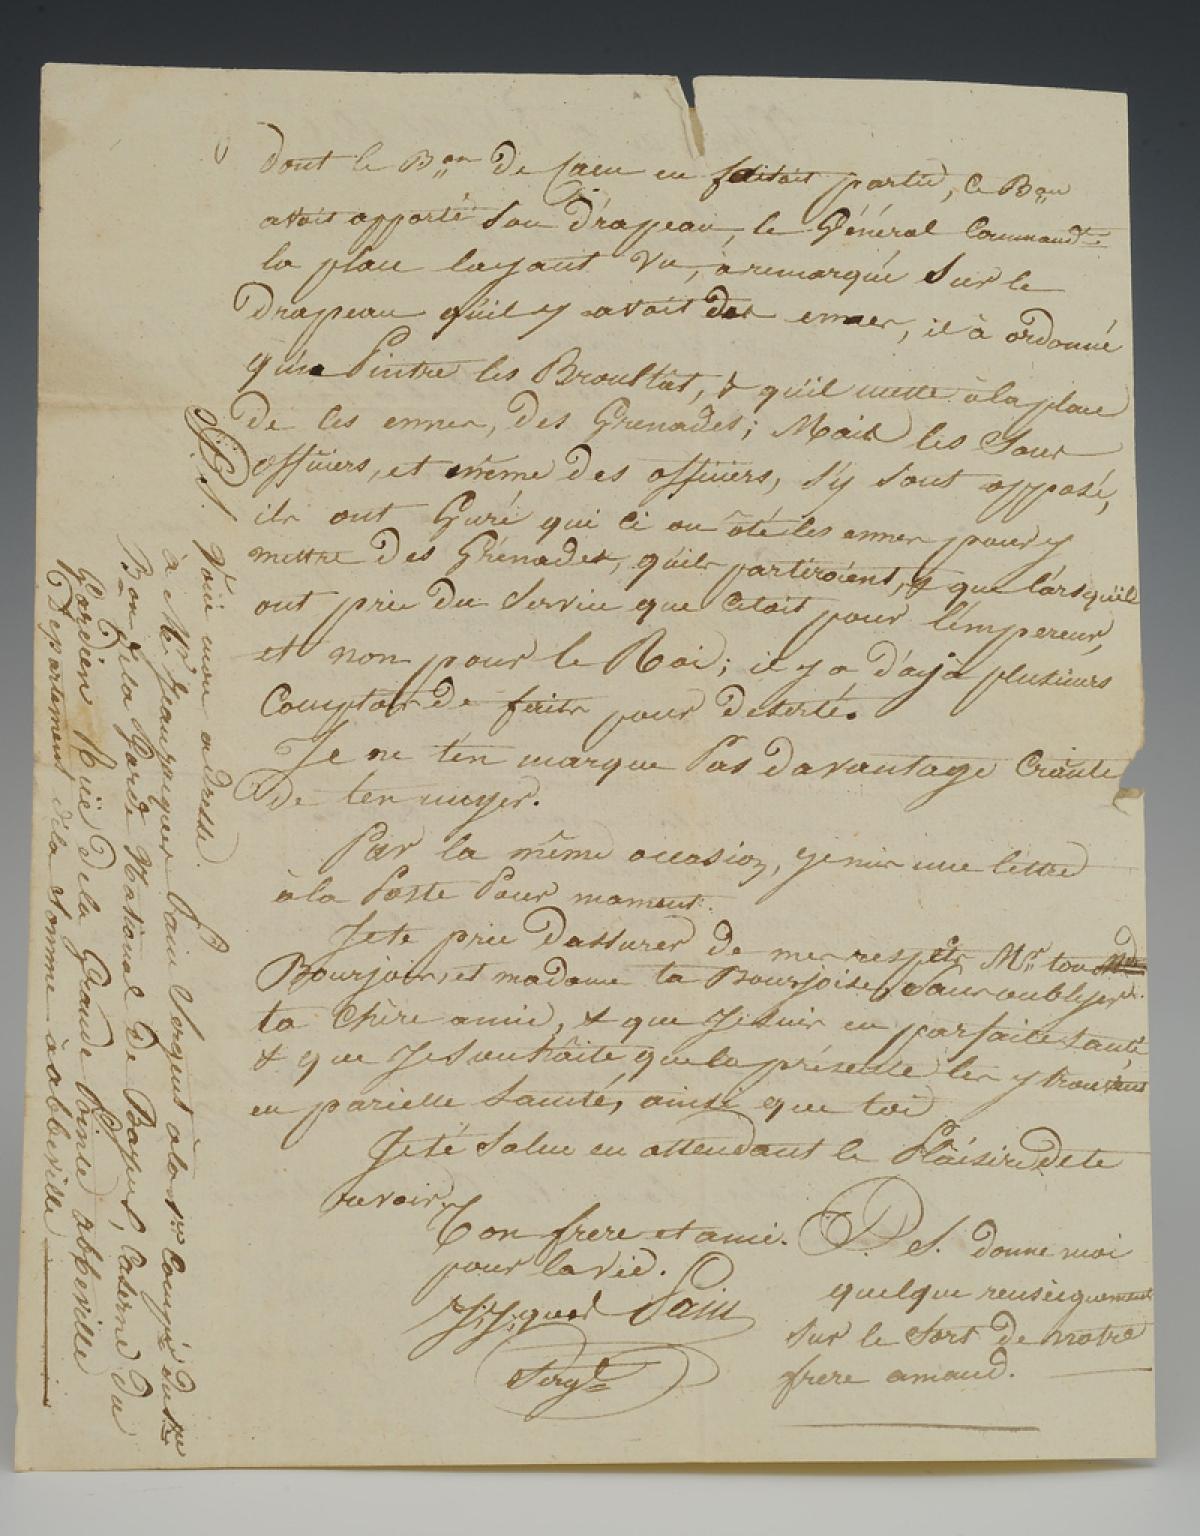 dont le B.on De Caen en faisait partie, ce B.on
avait apporté son Drapeau, le Général Command.t
la place layant vu, à remarqué sur le
Drapeau quil y avait des emner, il à ordonné
qu'un Peintre les Broultat, & qu'il mette à la place
De les emner, des Grenades; Mais les Sour
officiers, et même des officiers, s'y sont opposé,
ils ont Guré qui ci on ôté les emner pour y
mettre Des Grénades, quils partiroient, & que lorsquils
ont pris du Service que cétait pour lempereur,
et non pour le Roi; il y a d'ajà plusieurs
Comptor De faits pour deserté.
Je ne t'en marque Pas davantage Crainte
De ten nuyer.
Par la même occasion, je mis une lettre
à la Poste Pour maman.
Je te prie Dassurer De mes respets M.r ton
Bourjois, et madame ta Bourjoise, Sans oublyer
ta Chère amie, & que Je suis en parfaite Santé,
& que Je souhâite que la présente les y trouvent
en parielle Santé, ainsi que toi
Je té Salue en attendant le Pláisire de te
revoir.
Ton frere et ami.
pour la vie.
J.J.ques Pain
Serg.t
P.S. donne moi
quelque renseignement
sur le Sort de notre
frere amand.
P.S. Voici mon adresse.
à M.r Jean Jacques Pain Sergent à la 1.re Comp.ie du 1.er
B.on De la Garde National De Bayeux, Caserne du
Gardien Rüe De la Grande Pointe abbeville
Département de la Somme à abbeville